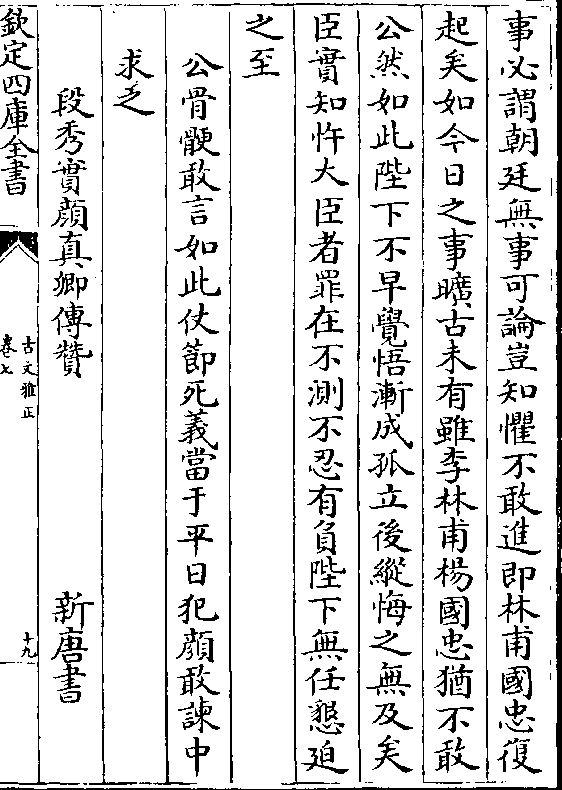 事必謂朝廷無事可論豈知懼不敢進即林甫國忠復
起矣如今日之事曠古未有雖李林甫楊國忠猶不敢
公然如此陛下不早覺悟漸成孤立後縱悔之無及矣
臣實知忤大臣者罪在不測不忍有負陛下無任懇迫
之至
公骨骾敢言如此仗節死義當于平日犯顔敢諫中
求之
段秀實顔真卿傳贊 新唐書
欽定四庫全書
古文雅正
卷七
十九